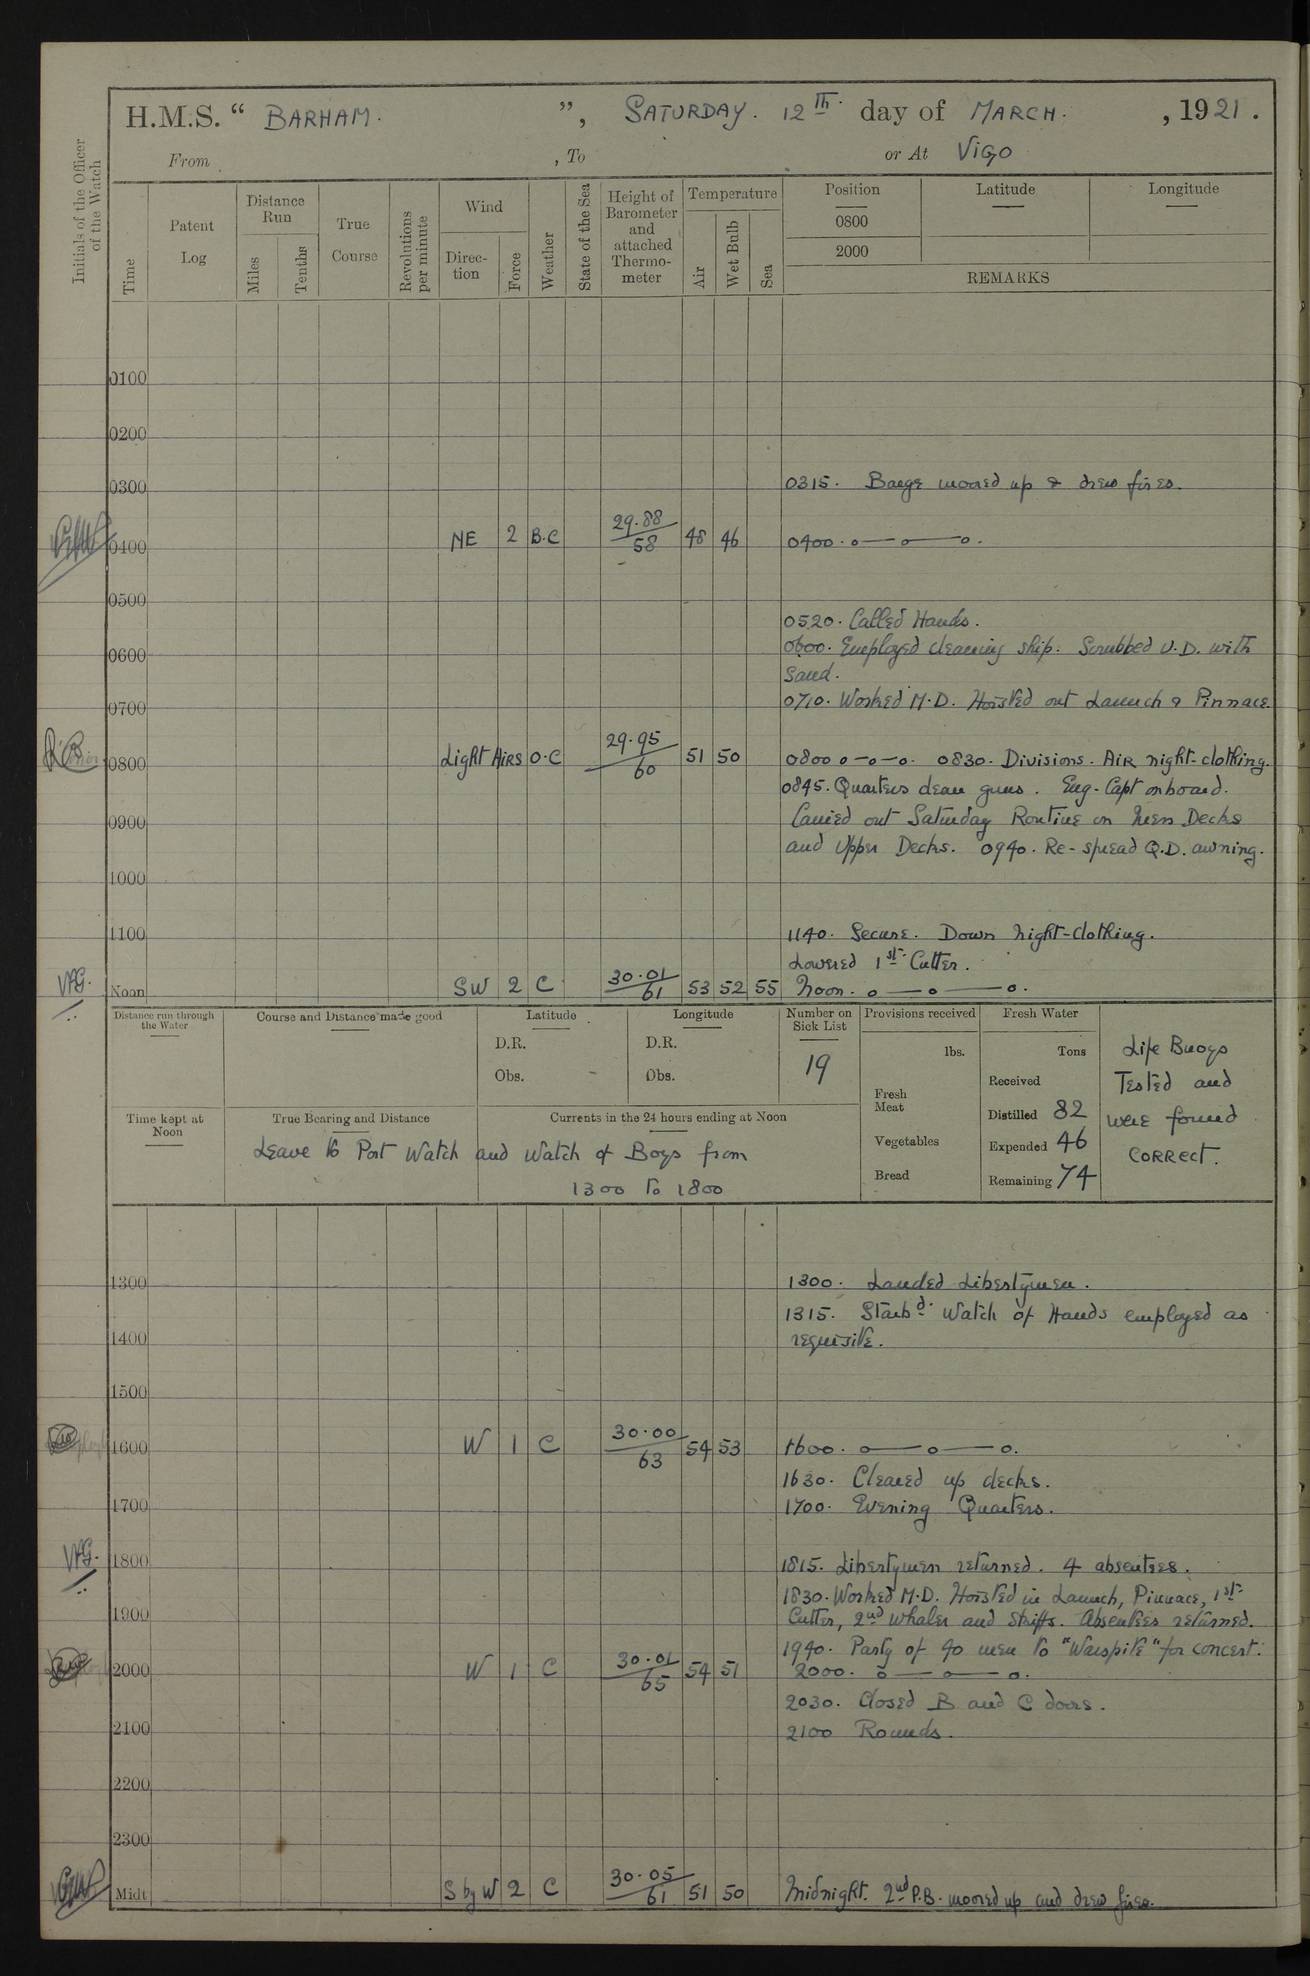 H.M.S. “ BARHAM. ”, SATURDAY. 12th. day of MARCH. , 1921.
From , To or At VIGO
Initials of the Officer of the Watch
Time
Patent Log
Distance Run
Miles
Tenths
True Course
Revolutions per minute
Wind
Direc-tion
Force
Weather
State of the Sea
Height of Barometer and attached Thermo-meter
Temperature
Air
Wet Bulb
Sea
Position Latitude Longitude
0800
2000
REMARKS
0100
0200
0300 0315. Barge moored up & drew fires.
0400 NE 2 B.C 29.88/58 48 46 0400. o—o—o.
0500
0520. Called Hands.
0600 0600. Employed cleaning ship. Scrubbed U.D. with
sand.
0700 0710. Worked M.D. Hoisted out Launch & Pinnace.
0800 Light Airs O.C 29.95/60 51 50 0800 o-o-o. 0830. Divisions. Air night-clothing.
0845. Quarters clean guns. Eng-Capt onboard.
0900 Carried out Saturday Routine on Mess Decks
and Upper Decks. 0940. Re-spread Q.D. awning.
1000
1100 1140. Secure. Down Night-clothing.
Lowered 1st. Cutter.
VAG. Noon SW 2 C 30.01/61 53 52 55 Noon. o—o—o.
Distance run through the Water
Course and Distance made good
Latitude
D.R.
Obs.
Longitude
D.R.
Obs.
Number on Sick List
19
Provisions received
lbs.
Fresh Meat
Vegetables
Bread
Fresh Water
Tons
Received
Distilled 82
Expended 46
Remaining 74
Life Buoys
Tested and
were found
correct.
Time kept at Noon
True Bearing and Distance
Currents in the 24 hours ending at Noon
Leave to Port Watch and Watch of Boys from
1300 to 1800
1300 1300. Landed Libertymen.
1315. Starbd. Watch of Hands employed as
1400 requisite.
1500
1600 W 1 C 30.00/63 54 53 1600. o—o—o.
1630. Cleared up decks.
1700 1700. Evening Quarters.
VAG. 1800 1815. Libertymen returned. 4 absentees.
1830. Worked M.D. Hoisted in Launch, Pinnace, 1st.
1900 Cutter, 2nd Whaler and Skiffs. Absentees returned.
1940. Party of 40 men to "Warspite" for concert.
2000 W 1 C 30.01/65 54 51 2000. o—o—o.
2030. Closed B and C doors.
2100 2100 Rounds.
2200
2300
Midt S by W 2 C 30.05/61 51 50 Midnight. 2nd P.B. moored up and drew fires.